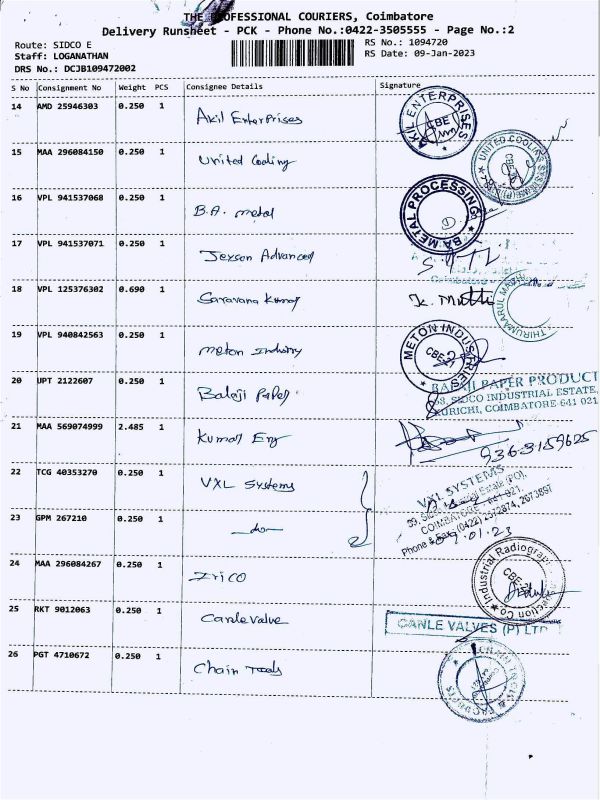 THE PROFESSIONAL COURIERS, Coimbatore
Delivery Runsheet - PCK - Phone No.:0422-3505555 - Page No.:2
Route: SIDCO E
Staff: LOGANATHAN
DRS No.: DCJB109472002
RS No.: 1094720
RS Date: 09-Jan-2023
S No Consignment No Weight PCS Consignee Details Signature
14 AMD 25946303 0.250 1 Akil Enterprises
AKIL ENTERPRISES CBE
15 MAA 296084150 0.250 1 United Cooling
UNITED COOLING SYSTEMS (P) CBE
16 VPL 941537068 0.250 1 B.A. metal
BA METAL PROCESSING
17 VPL 941537071 0.250 1 Jexson Advanced
Coimbatore
18 VPL 125376302 0.690 1 Saravana Kumar
K. Muthu
THIRUMARUL
19 VPL 940842563 0.250 1 meton Industry
METON INDUSTRIES CBE
20 UPT 2122607 0.250 1 Balaji Paper
BALAJI PAPER PRODUCT
SIDCO INDUSTRIAL ESTATE,
KURICHI, COIMBATORE-641 021
21 MAA 569074999 2.485 1 Kumar Eng
9363159625
22 TCG 40353270 0.250 1 VXL Systems
VXL SYSTEMS
Estate (PO),
COIMBATORE - 641 021.
Phone & Fax: (0422) 2672874, 2673897
23 GPM 267210 0.250 1 -do-
01.23
24 MAA 296084267 0.250 1 Irico
Industrial Radiograp Inspection Co CBE
25 RKT 9012063 0.250 1 Canle Valve
CANLE VALVES (P) LTD
26 PGT 4710672 0.250 1 Chain Tools
CHAIN